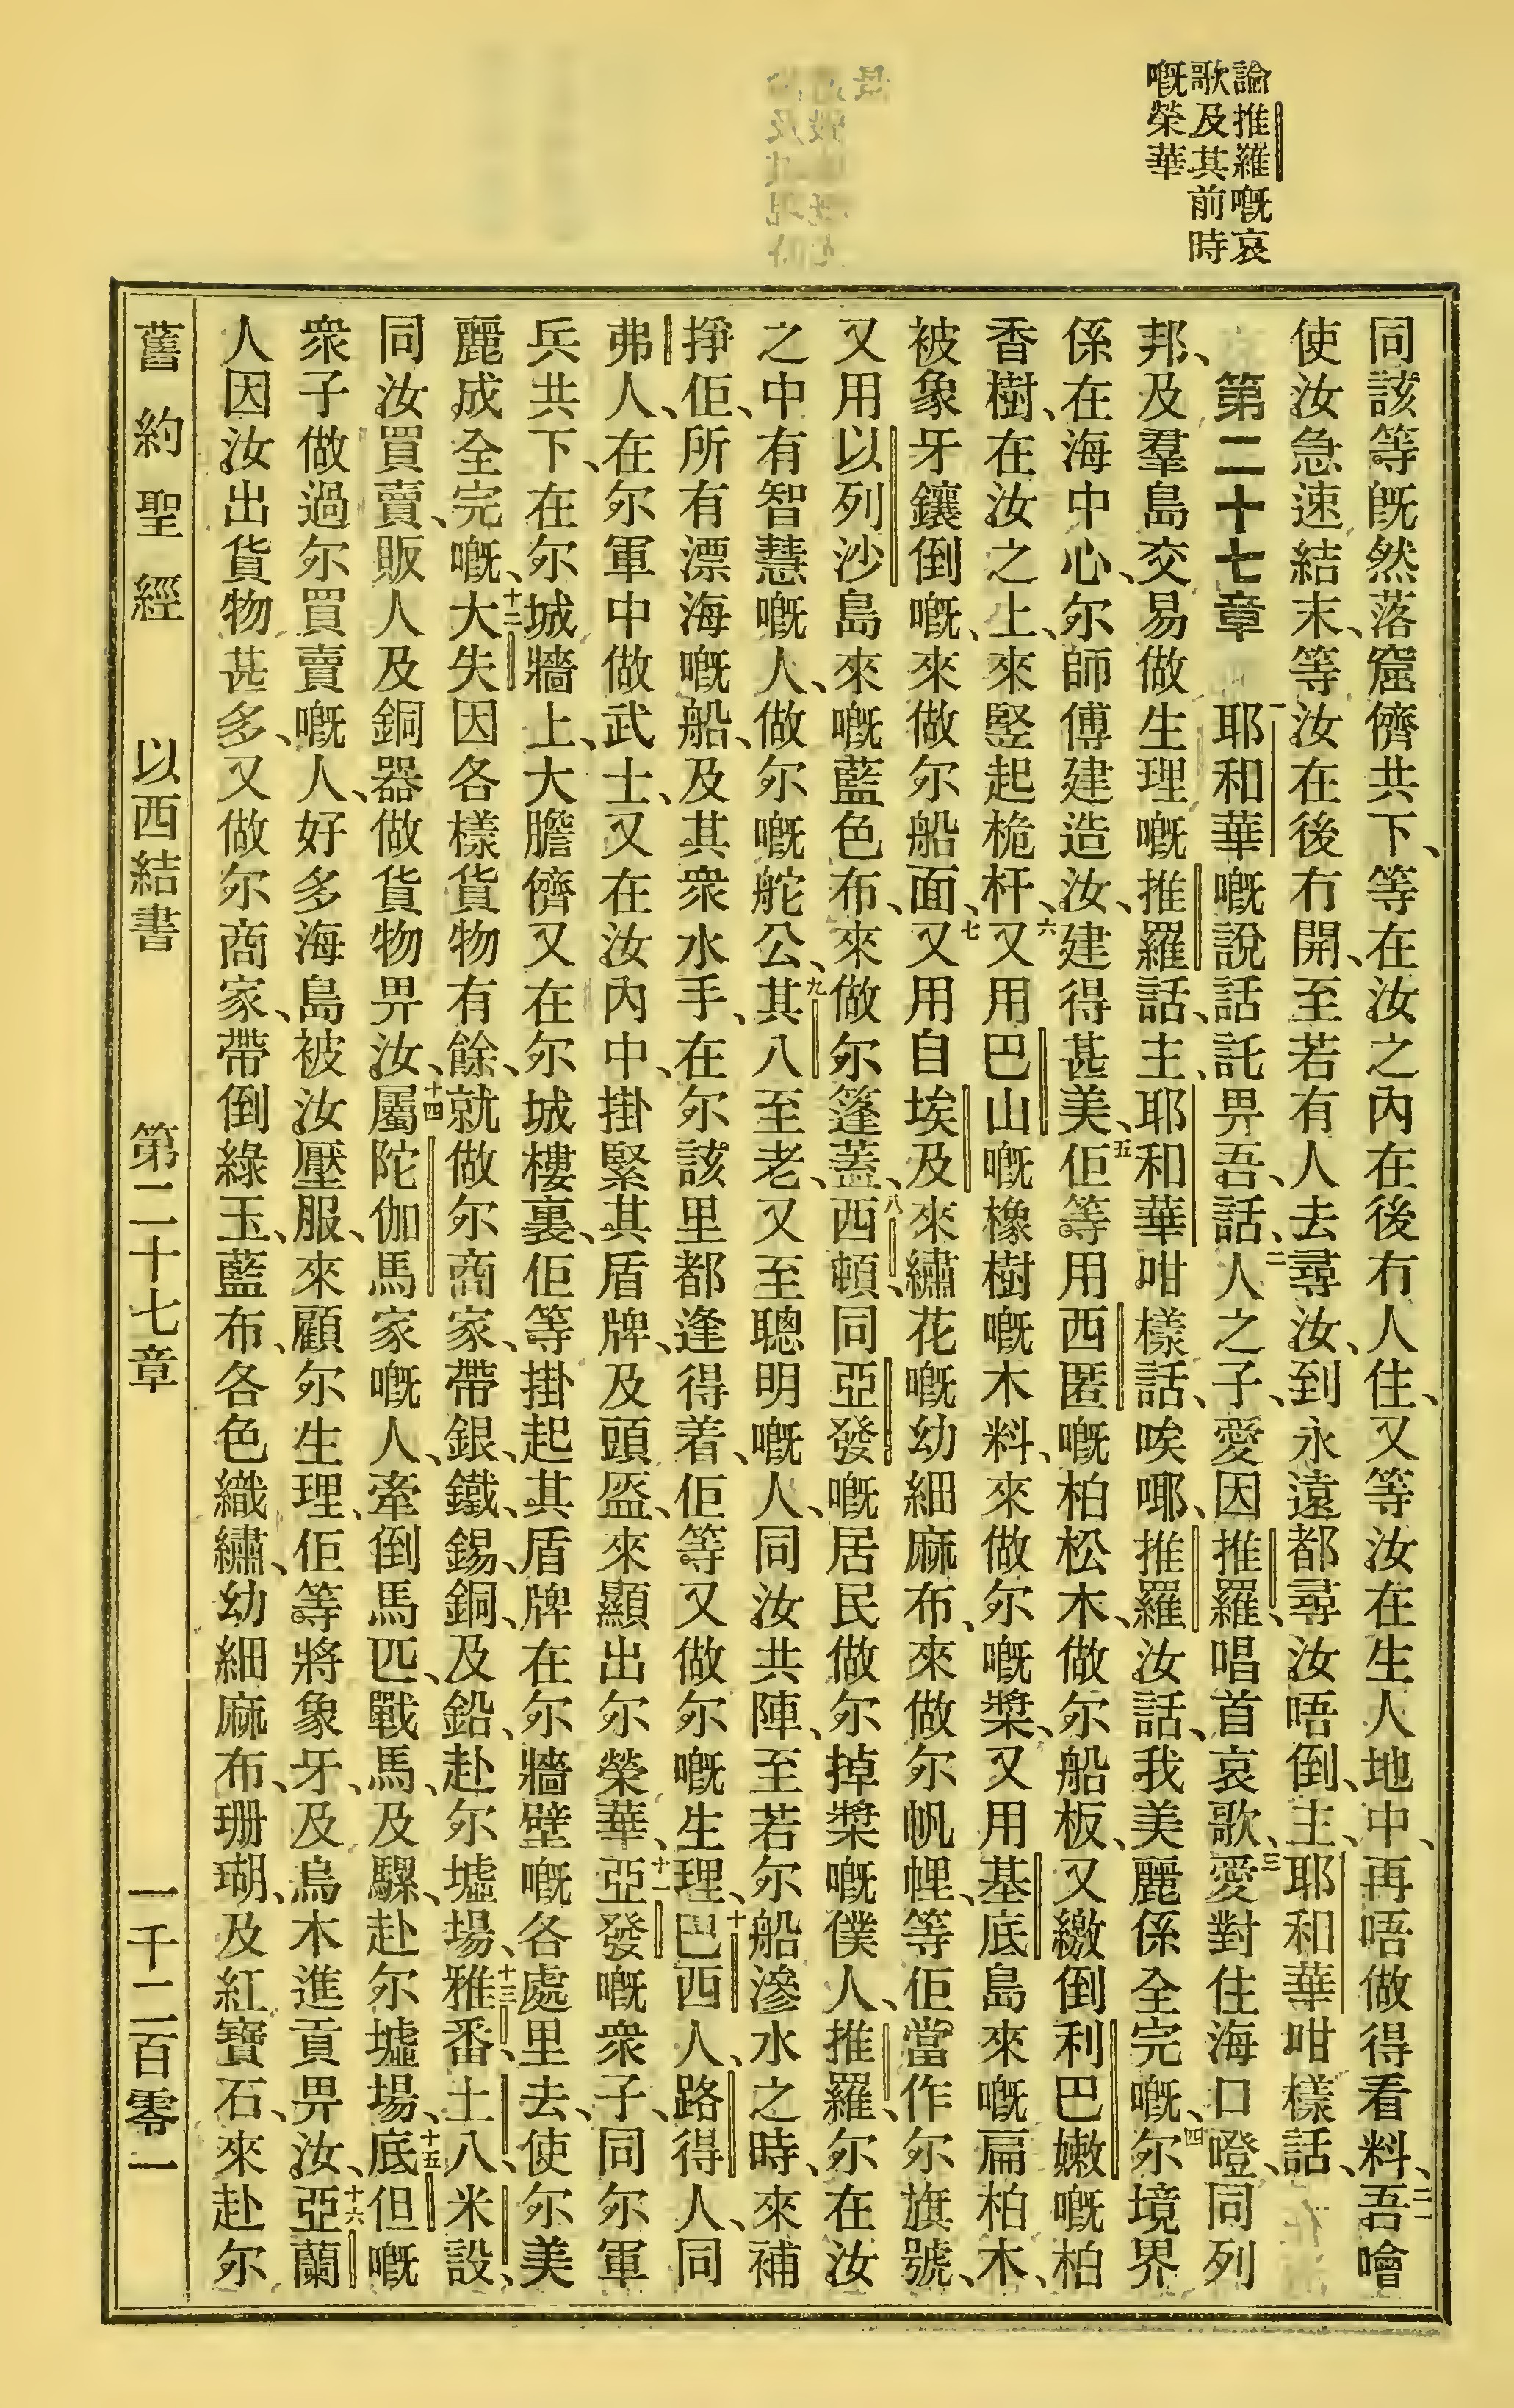 論推羅嘅哀
歌及其前時
嘅榮華
同該等旣然落窟儕共下、等在汝之內在後冇人住、又等汝在生人地中、再唔做得看料、二一吾噲
使汝急速結末、等汝在後冇開、至若有人去尋汝、到永遠都尋汝唔倒、主、耶和華咁樣話、
第二十七章 一耶和華嘅說話託畀吾、話、二人之子、愛因推羅、唱首哀歌、三愛對住海口嶝、同列
邦、及羣島交易做生理嘅推羅話、主、耶和華咁樣話、唉㖿、推羅汝話、我美麗係全完嘅、四尔境界
係在海中心、尔師傅建造汝、建得甚美、五佢等用西匿嘅柏松木、做尔船板、又繳倒利巴嫩嘅柏
香樹、在汝之上、來竪起桅杆、六又用巴山嘅橡樹嘅木料、來做尔嘅槳、又用基底島來嘅扁柏木、
被象牙鑲倒嘅、來做尔船面、七又用自埃及來繡花嘅幼細麻布、來做尔帆𢃇、等佢當作尔旗號、
又用以列沙島來嘅藍色布、來做尔篷蓋、八西頓、同亞發嘅居民做尔掉槳嘅僕人、推羅、尔在汝
之中有智慧嘅人、做尔嘅舵公、九其八至老、又至聰明嘅人、同汝共陣、至若尔船滲水之時、來補
掙佢、所有漂海嘅船、及其衆水手、在尔該里都逢得着、佢等又做尔嘅生理、十巴西人、路得人、同
弗人、在尔軍中做武士、又在汝內中、掛緊其盾牌、及頭盔、來顯出尔榮華、十一亞發嘅衆子、同尔軍
兵共下、在尔城牆上、大膽儕又在尔城樓裏、佢等掛起其盾牌在尔牆壁嘅各處里去、使尔美
麗成全完嘅、十二大失因各樣貨物有餘、就做尔商家、帶銀、鐵、錫、銅、及鉛、赴尔墟場、十三雅番、土八、米設、
同汝買賣、販人及銅器做貨物畀汝、十四屬陀伽馬家嘅人、牽倒馬匹、戰馬、及騾、赴尔墟場、十五底但嘅
衆子做過尔買賣嘅人、好多海島被汝壓服、來顧尔生理、佢等將象牙、及烏木進貢畀汝、十六亞蘭
人因汝出貨物甚多、又做尔商家、帶倒綠玉、藍布、各色織繡、幼細麻布、珊瑚、及紅寶石、來赴尔
舊約聖經 以西結書 第二十七章 一千二百零一